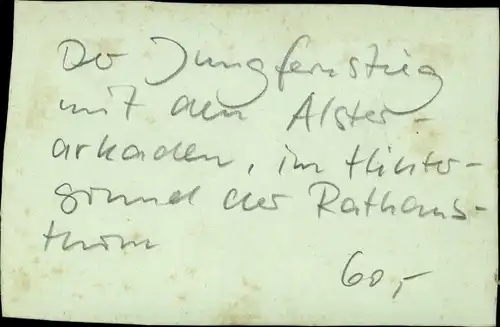 Der Jungfernstieg
mit den Alster-
arkaden, im Hinter-
grund der Rathaus-
thurm
60,-